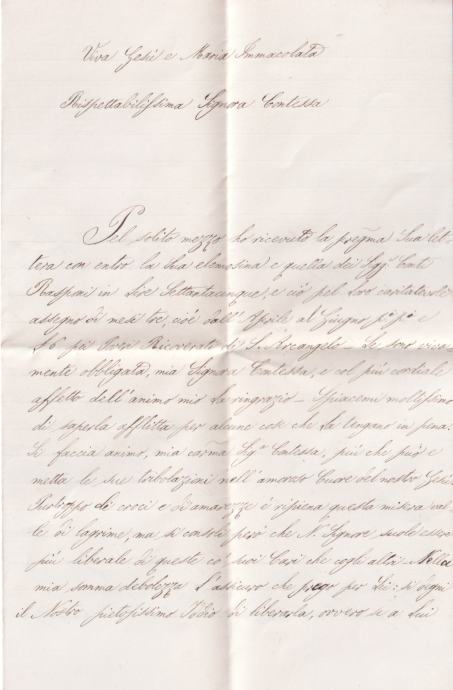 Viva Gesù e Maria Immacolata
Rispettabilissima Signora Contessa
Pel solito mezzo ho ricevuto la pregma Sua let-
tera con entro la Sua elemosina e quella dei Sigg. Conti
Rasponi in Lire Settantacinque, e ciò pel loro caritatevole
assegno di mesi tre, cioè dall' Aprile al Giugno
pei Ricoverati di S. Arcangelo. Le sono viva-
mente obbligata, mia Signora Contessa, e col più cordiale
affetto dell'animo mio La ringrazio – Spiacemi moltissimo
di saperla afflitta per alcune cose che La tengano in pena.
Si faccia animo, mia carma Sig.a Contessa, più che può e
metta le sue tribolazioni nell'amoroso Cuore del nostro Gesù
Purtroppo di croci e di amarezze è ripiena questa misera val-
le di lagrime, ma si consoli però che N. Signore, suole essere
più liberale di queste co' suoi Cari che cogli altri. Nella
mia somma debolezza L'assicuro che prego per Lei: si degni
il Nostro pietosissimo Iddio di liberarla, ovvero se a Lui